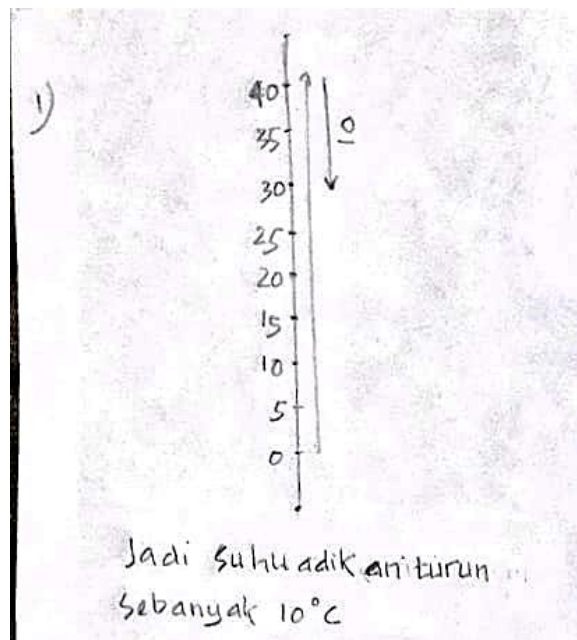 1)
40
35
10
30
25
20
15
10
5
0
Jadi suhu adik ani turun
sebanyak 10°C